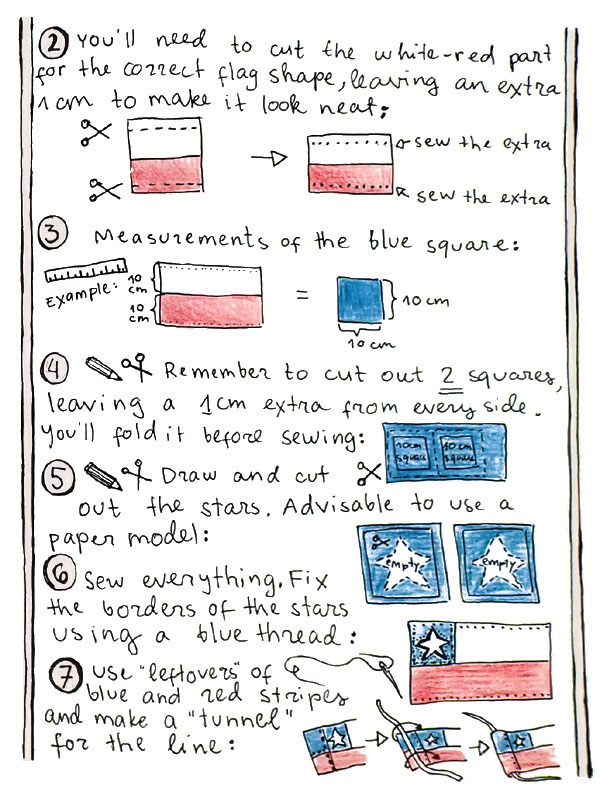 2 You'll need to cut the white-red part
for the correct flag shape, leaving an extra
1 cm to make it look neat;
sew the extra
sew the extra
3 Measurements of the blue square:
Example:
10 cm
10 cm
=
10 cm
10 cm
4 Remember to cut out 2 squares,
leaving a 1cm extra from every side.
You'll fold it before sewing:
10cm square
10 cm square
5 Draw and cut
out the stars. Advisable to use a
paper model:
empty
empty
6 Sew everything. Fix
the borders of the stars
using a blue thread:
7 Use "leftovers" of
blue and red stripes
and make a "tunnel"
for the line: